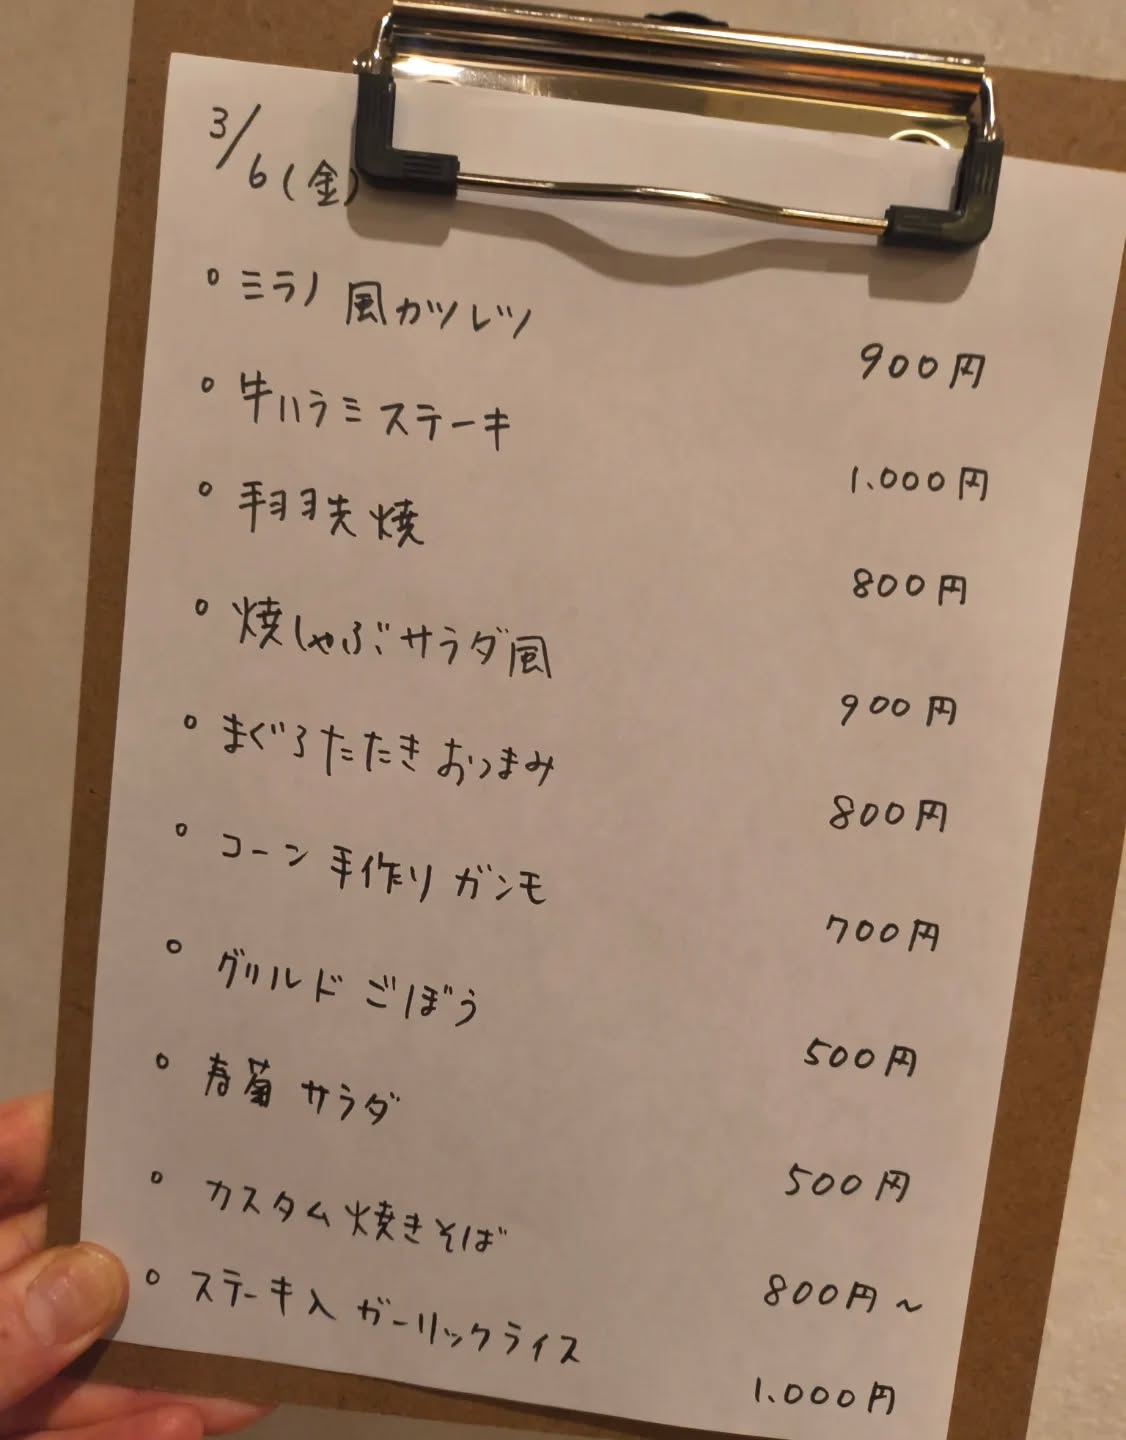 3/6(金)
○ミラノ風カツレツ
900円
○牛ハラミステーキ
1.000円
○手羽先焼
800円
○焼しゃぶサラダ風
900円
○まぐろたたきおつまみ
800円
○コーン手作りガンモ
700円
○グリルドごぼう
500円
○春菊サラダ
500円
○カスタム焼きそば
800円～
○ステーキ入ガーリックライス
1.000円